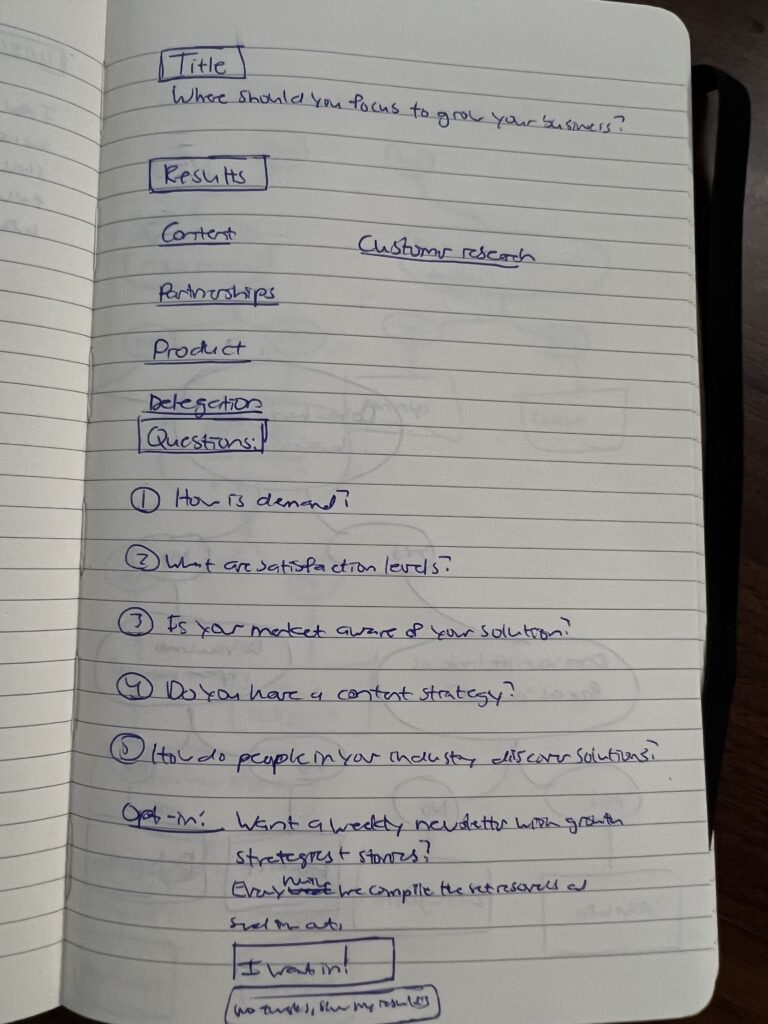 Title
Where should you focus to grow your business?
Results
Content
Customer research
Partnerships
Product
Delegation
Questions:
① How is demand?
② What are satisfaction levels?
③ Is your market aware of your solution?
④ Do you have a content strategy?
⑤ How do people in your industry discover solutions?
Opt-in: Want a weekly newsletter with growth
strategies + stories?
Every we compile the
I want in!
No thanks, show my results